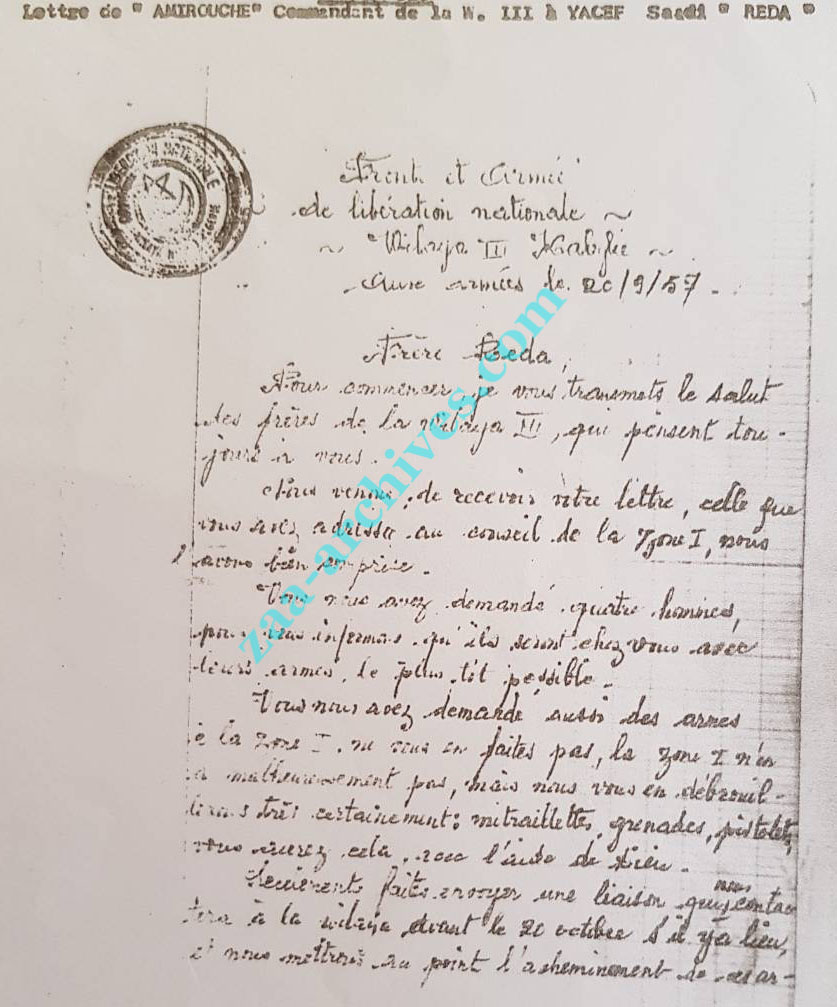 Lettre de " AMIROUCHE" Commandant de la W. III à YACEF Saadi " REDA "
Front et Armée
de libération nationale ~
~ Wilaya III Kabylie ~
Aux armées le 20/9/57.
Frère Reda,
Pour commencer, je vous transmets le salut
des frères de la wilaya III, qui pensent tou-
jours à vous.
Nous venons de recevoir votre lettre, celle que
vous avez adressée au conseil de la Zone I, nous
l'avons bien comprise.
Vous nous avez demandé quatre hommes,
nous vous informons qu'ils seront chez vous avec
leurs armes, le plus tôt possible.
Vous nous avez demandé aussi des armes
à la zone I, ne vous en faites pas, la zone I n'en
a malheureusement pas, mais nous vous en débrouil-
lerons très certainement: mitraillettes, grenades, pistolets,
vous aurez cela, avec l'aide de Dieu.
faites envoyer une liaison qui nous contac
tera à la wilaya avant le 20 octobre s'il y a lieu,
et nous mettrons au point l'acheminement de ces ar-
zaa-archives.com